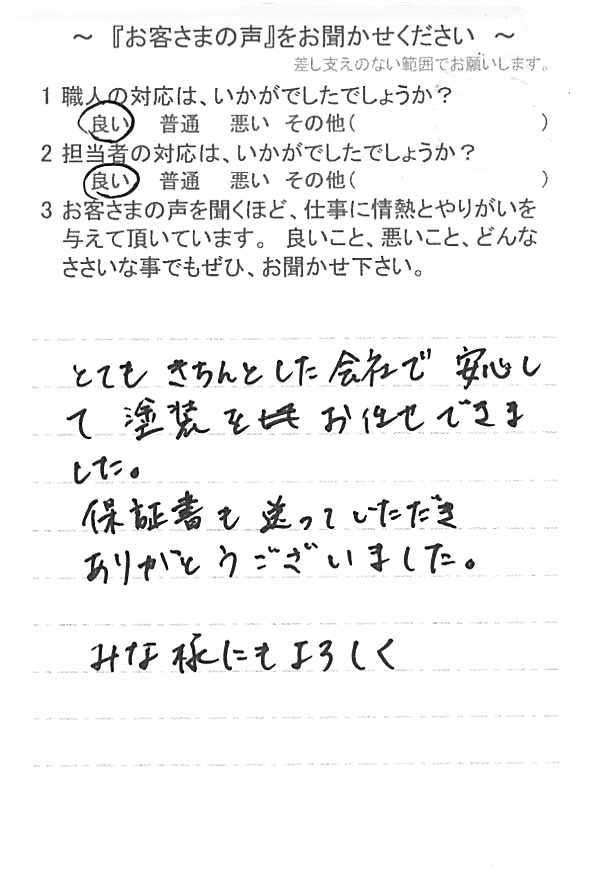 ～ 『お客さまの声』をお聞かせください ～
差し支えのない範囲でお願いします。
1 職人の対応は、いかがでしたでしょうか？
良い 普通 悪い その他( )
2 担当者の対応は、いかがでしたでしょうか？
良い 普通 悪い その他( )
3 お客さまの声を聞くほど、仕事に情熱とやりがいを
与えて頂いています。 良いこと、悪いこと、どんな
ささいな事でもぜひ、お聞かせ下さい。
とても きちんとした 会社で 安心し
て 塗装を お任せできま
した。
保証書も 送っていただき
ありがとうございました。
みな様にもよろしく